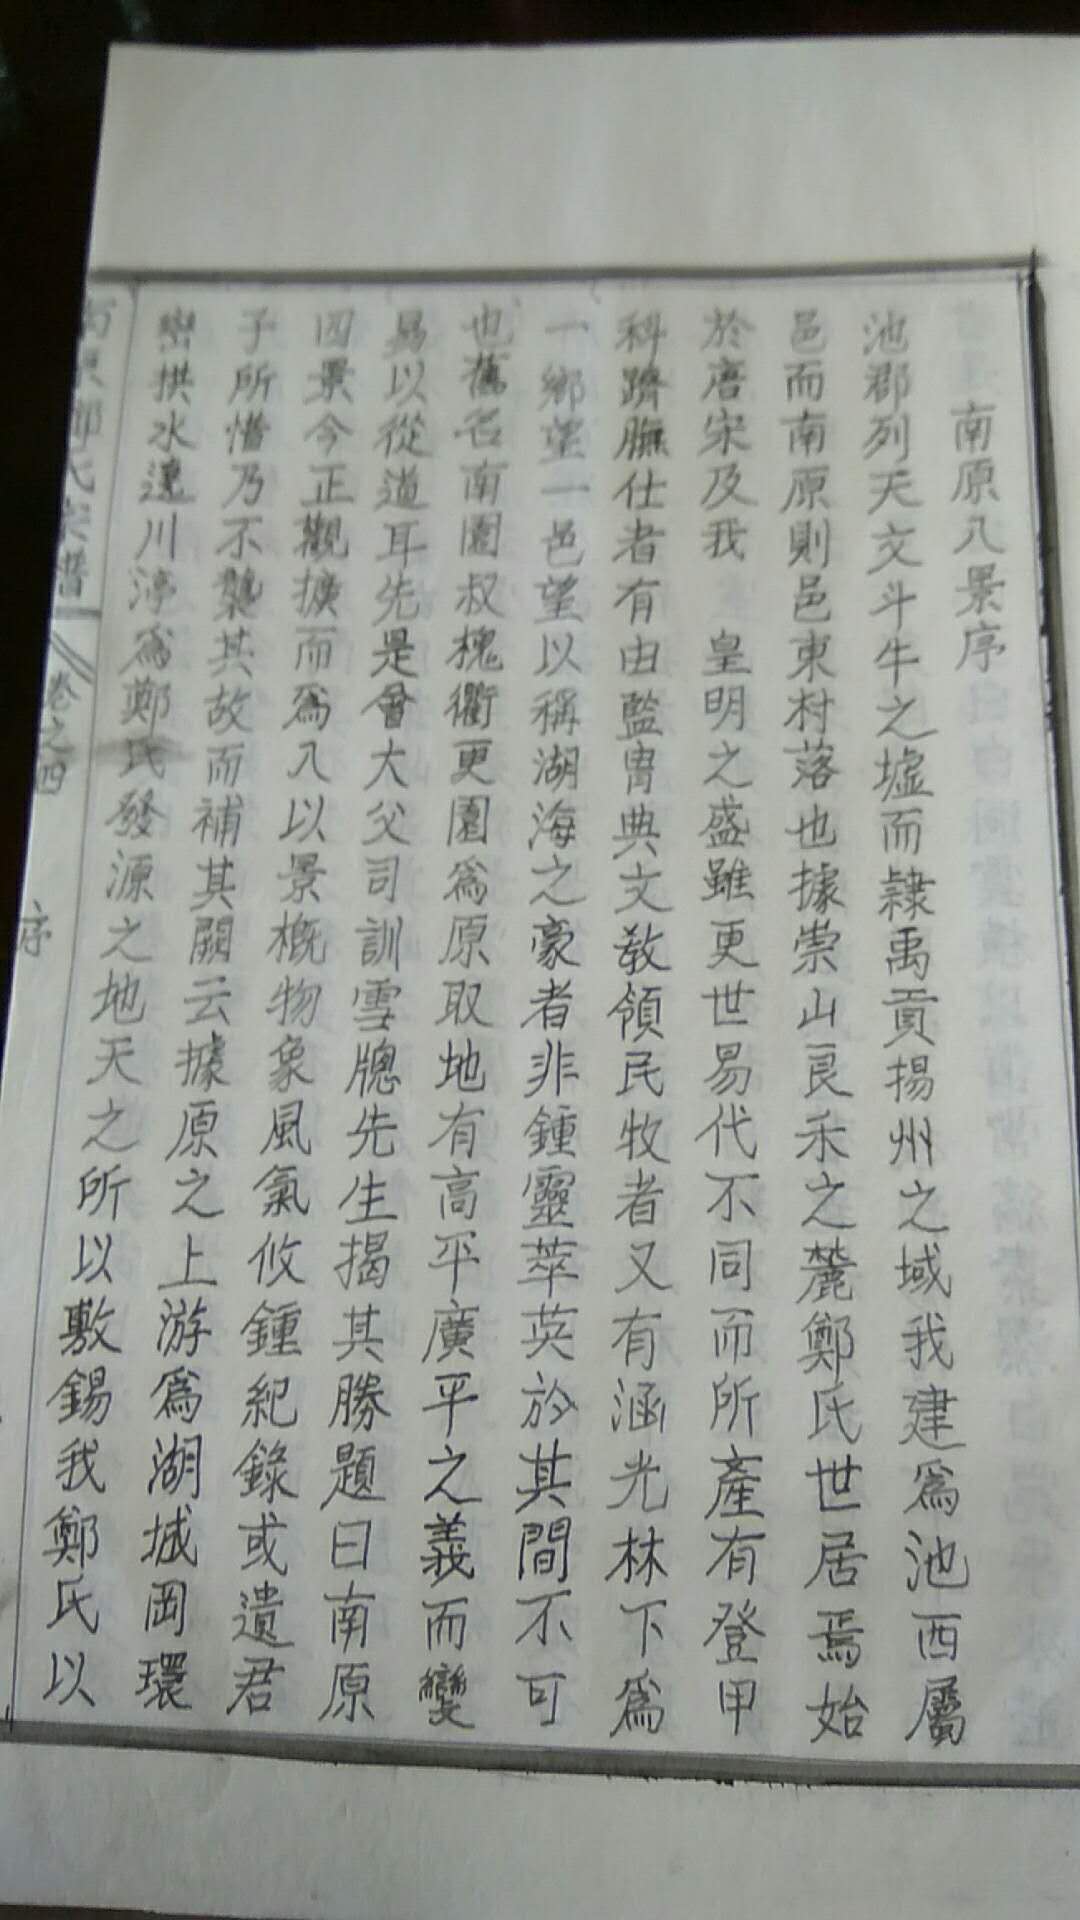 南原八景序
池郡列天文斗牛之墟而隷禹貢揚州之域我建爲池西屬
邑而南原則邑東村落也據崇山良禾之麓鄭氏世居焉始
於唐宋及我 皇明之盛雖更世易代不同而所產有登甲
科躋膴仕者有由監胄典文教領民牧者又有涵光林下爲
一鄉望一邑望以稱湖海之豪者非鍾靈萃英於其間不可
也舊名南園叔槐衢更園爲原取地有高平廣平之義而變
易以從道耳先是曾大父司訓雪牕先生揭其勝題曰南原
四景今正觀擴而爲八以景概物象風氣攸鍾紀錄或遺君
子所惜乃不襲其故而補其闕云據原之上游爲湖城岡環
巒拱水遶川渟爲鄭氏發源之地天之所以敷錫我鄭氏以
南原鄭氏宗譜 卷之四 序